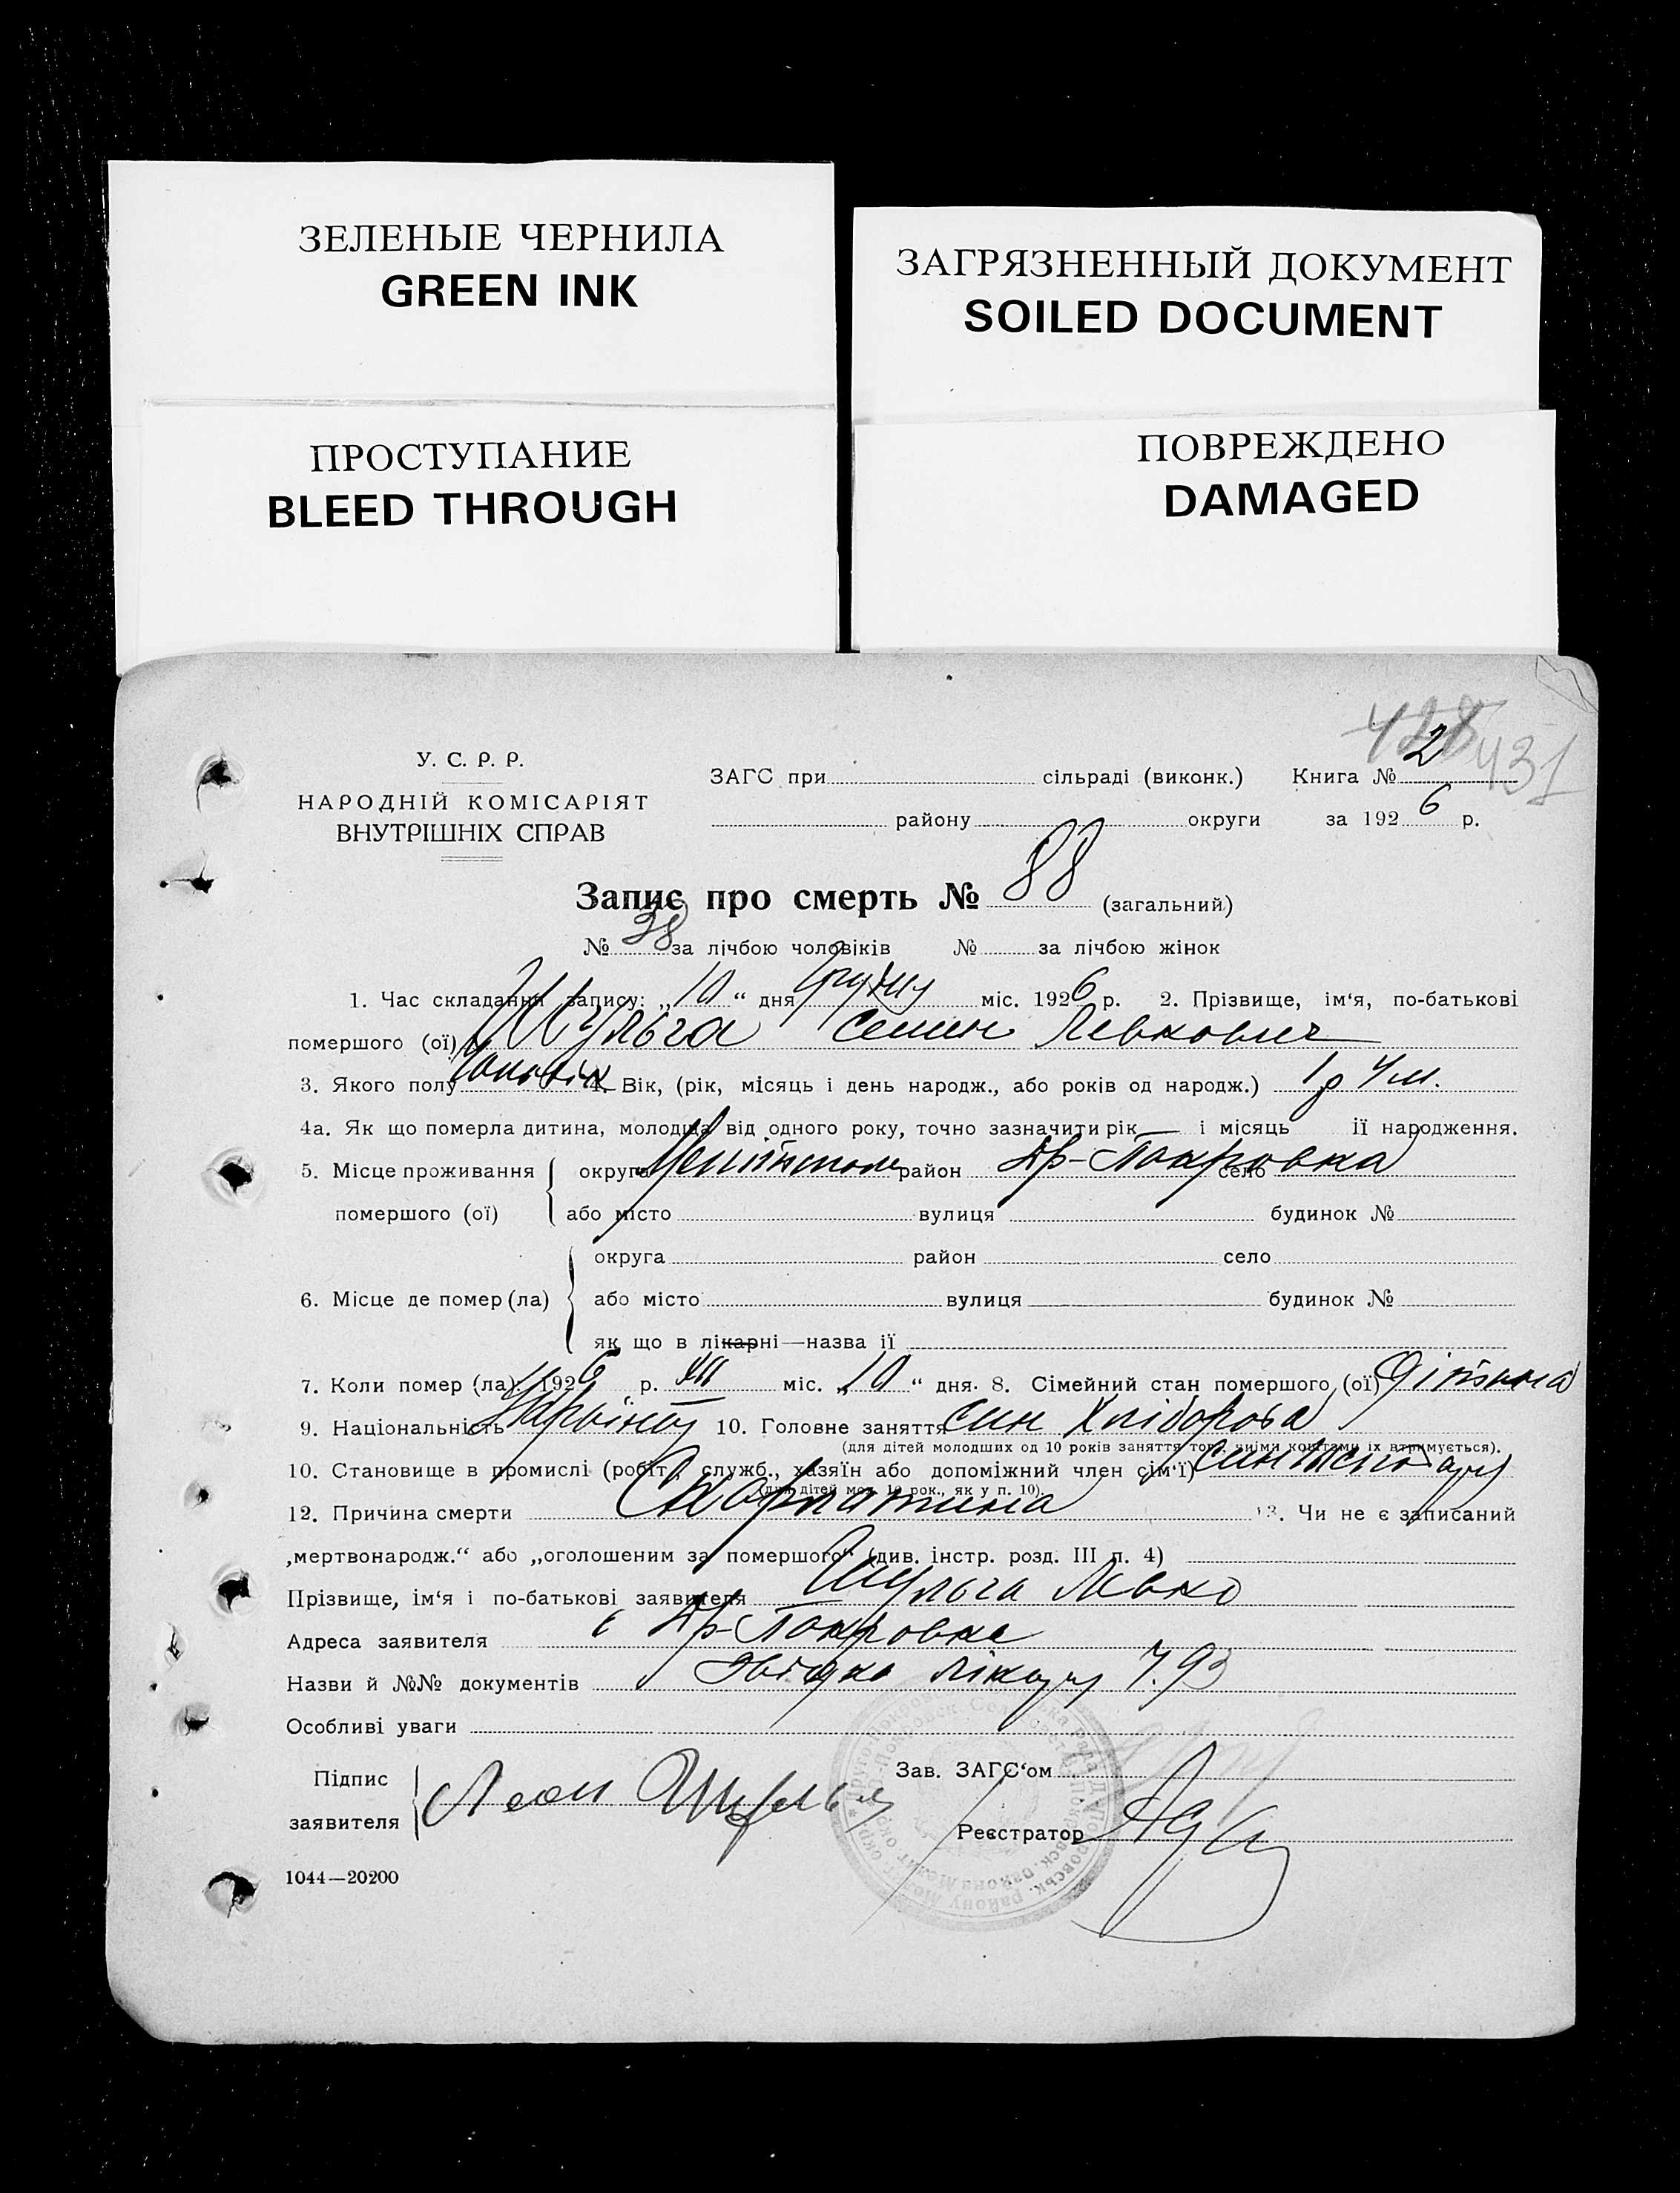 ЗЕЛЕНЫЕ ЧЕРНИЛА
GREEN INK
ЗАГРЯЗНЕННЫЙ ДОКУМЕНТ
SOILED DOCUMENT
ПРОСТУПАНИЕ
BLEED THROUGH
ПОВРЕЖДЕНО
DAMAGED
428 431
У. С. Р. Р.
НАРОДНІЙ КОМІСАРІЯТ
ВНУТРІШНІХ СПРАВ
ЗАГС при сільраді (виконк.) Книга № 2
району округи за 1926 р.
Запис про смерть № 88 (загальний)
№ 38 за лічбою чоловіків № за лічбою жінок
1. Час складання запису: „10“ дня грудня міс. 1926 р. 2. Прізвище, ім‘я, по-батькові
помершого (ої) Шульга Семен Левкович
3. Якого полу Чоловік 4. Вік, (рік, місяць і день народж., або років од народж.) 1 р 4 м.
4а. Як що померла дитина, молодша від одного року, точно зазначити рік — і місяць її народження.
5. Місце проживання округа район Др-Покровка село
помершого (ої) або місто вулиця будинок №
округа район село
6. Місце де помер (ла) або місто вулиця будинок №
як що в лікарні—назва її
7. Коли помер (ла) 1926 р. XII міс. „10“ дня. 8. Сімейний стан помершого (ої) Дитина
9. Національність 10. Головне заняття син Хлібороба
(для дітей молодших од 10 років заняття того, чиїми коштами їх втримується).
10. Становище в промислі (робіт., служб., хазяїн або допоміжний член сім‘ї) син
(для дітей мол. 10 рок., як у п. 10).
12. Причина смерти Скарлатина 13. Чи не є записаний
„мертвонародж.“ або „оголошеним за помершого“ (див. інстр. розд. III п. 4)
Прізвище, ім‘я і по-батькові заявителя Шульга Левко
Адреса заявителя с Др-Покровка
Назви й №№ документів Звідка лікаря 793
Особливі уваги
Підпис
заявителя Леон Шульга
Зав. ЗАГС‘ом
Реєстратор
1044—20200